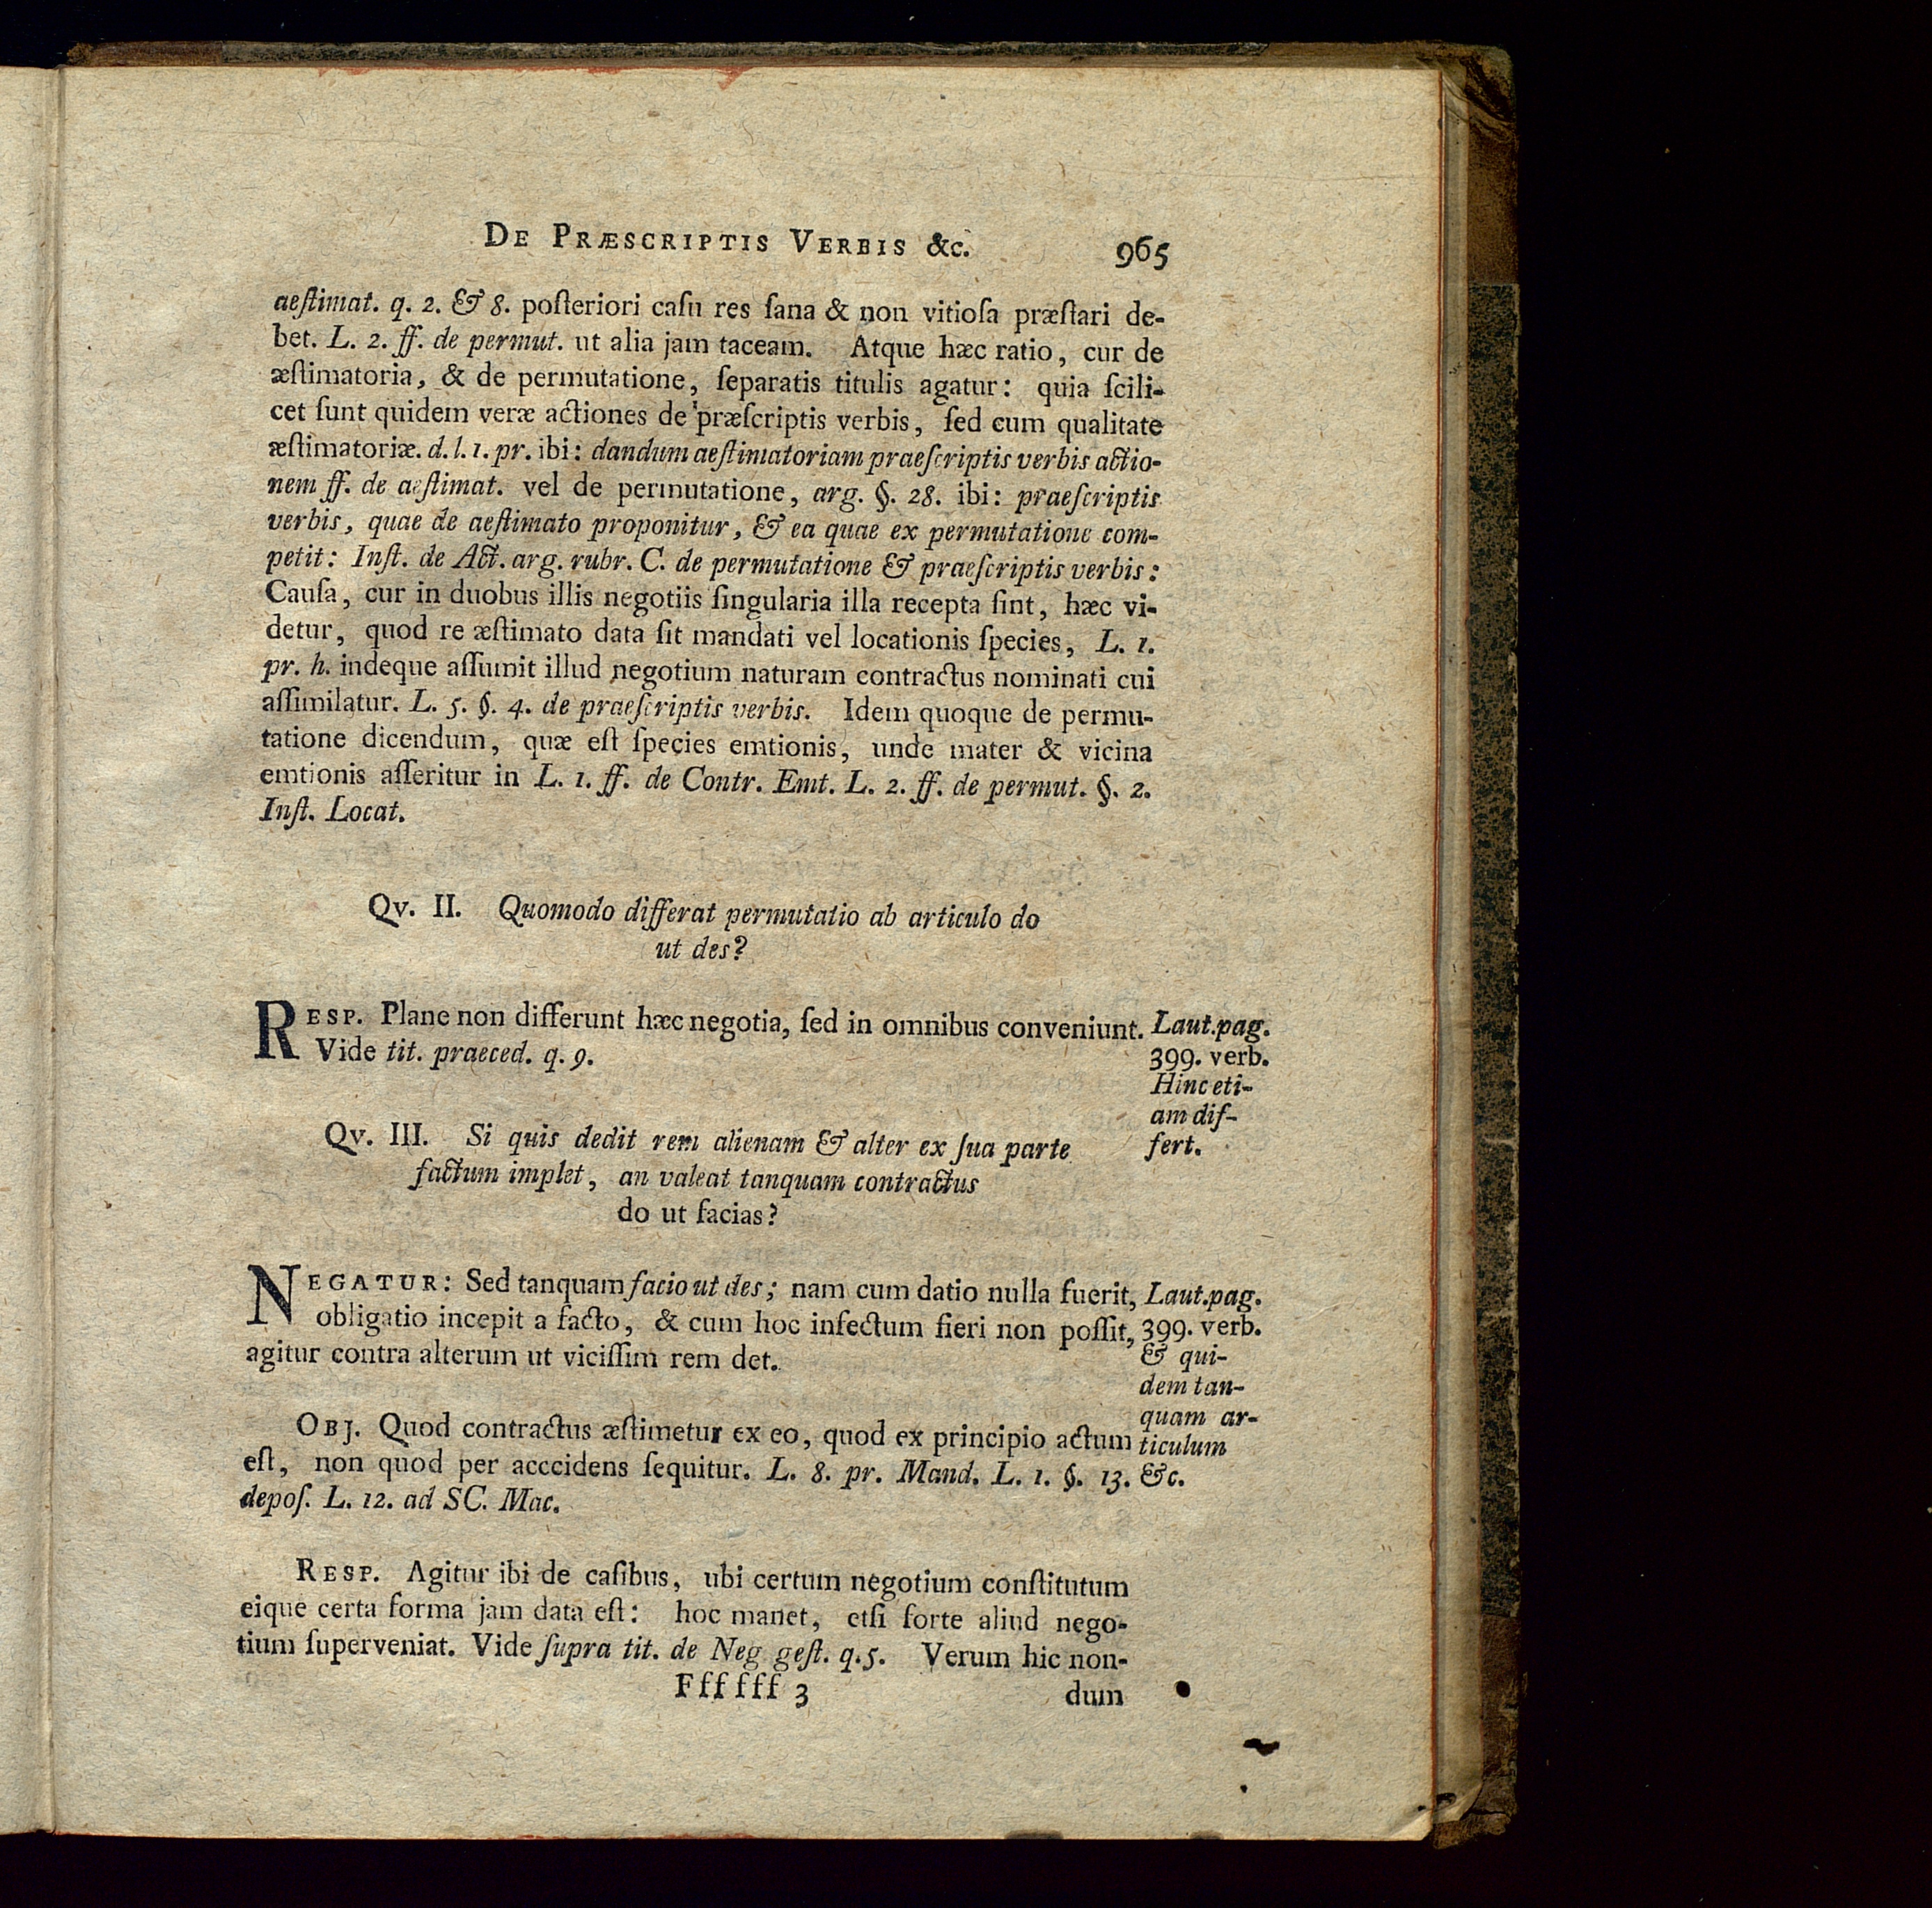 De Præscriptis Verbis &c. 965
aeſtimat. q. 2. & 8. poſteriori caſu res ſana & non vitioſa præſtari de-
bet. L. 2. ff. de permut. ut alia jam taceam. Atque hæc ratio, cur de
æſtimatoria, & de permutatione, ſeparatis titulis agatur: quia ſcili-
cet ſunt quidem veræ actiones de præſcriptis verbis, ſed cum qualitate
æſtimatoriæ. d. l. 1. pr. ibi: dandum aeſtimatoriam praeſcriptis verbis actio-
nem ff. de aeſtimat. vel de permutatione, arg. §. 28. ibi: praeſcriptis
verbis, quae de aeſtimato proponitur, & ea quae ex permutatione com-
petit: Inſt. de Act. arg. rubr. C. de permutatione & praeſcriptis verbis:
Cauſa, cur in duobus illis negotiis ſingularia illa recepta ſint, hæc vi-
detur, quod re æſtimato data ſit mandati vel locationis ſpecies, L. 1.
pr. h. indeque aſſumit illud negotium naturam contractus nominati cui
aſſimilatur. L. 5. §. 4. de praeſcriptis verbis. Idem quoque de permu-
tatione dicendum, quæ eſt ſpecies emtionis, unde mater & vicina
emtionis aſſeritur in L. 1. ff. de Contr. Emt. L. 2. ff. de permut. §. 2.
Inſt. Locat.
Qv. II. Quomodo differat permutatio ab articulo do
ut des?
Resp. Plane non differunt hæc negotia, ſed in omnibus conveniunt.
Vide tit. praeced. q. 9.
Laut. pag.
399. verb.
Hinc eti-
am dif-
fert.
Qv. III. Si quis dedit rem alienam & alter ex ſua parte
factum implet, an valeat tanquam contractus
do ut facias?
Negatur: Sed tanquam facio ut des; nam cum datio nulla fuerit,
obligatio incepit a facto, & cum hoc infectum fieri non poſſit,
agitur contra alterum ut viciſſim rem det.
Laut. pag.
399. verb.
& qui-
dem tan-
quam ar-
ticulum
&c.
Obj. Quod contractus æſtimetur ex eo, quod ex principio actum
eſt, non quod per acccidens ſequitur. L. 8. pr. Mand. L. 1. §. 13.
depoſ. L. 12. ad SC. Mac.
Resp. Agitur ibi de caſibus, ubi certum negotium conſtitutum
eique certa forma jam data eſt: hoc manet, etſi forte aliud nego-
tium ſuperveniat. Vide ſupra tit. de Neg geſt. q. 5. Verum hic non-
Fff fff 3 dum